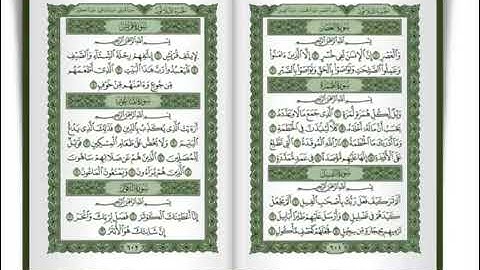 سُورَةُ العَصْرِ
بِسْمِ اللَّهِ الرَّحْمَٰنِ الرَّحِيمِ
وَالْعَصْرِ ١ إِنَّ الْإِنسَانَ لَفِي خُسْرٍ ٢ إِلَّا الَّذِينَ ءَامَنُوا
وَعَمِلُوا الصَّالِحَاتِ وَتَوَاصَوْا بِالْحَقِّ وَتَوَاصَوْا بِالصَّبْرِ ٣
سُورَةُ الهُمَزَةِ
بِسْمِ اللَّهِ الرَّحْمَٰنِ الرَّحِيمِ
وَيْلٌ لِّكُلِّ هُمَزَةٍ لُّمَزَةٍ ١ الَّذِي جَمَعَ مَالًا وَعَدَّدَهُ ٢
يَحْسَبُ أَنَّ مَالَهُ أَخْلَدَهُ ٣ كَلَّا لَيُنبَذَنَّ فِي الْحُطَمَةِ ٤
وَمَا أَدْرَىٰكَ مَا الْحُطَمَةُ ٥ نَارُ اللَّهِ الْمُوقَدَةُ ٦ الَّتِي تَطَّلِعُ
عَلَى الْأَفْـِٔدَةِ ٧ إِنَّهَا عَلَيْهِم مُّؤْصَدَةٌ ٨ فِي عَمَدٍ مُّمَدَّدَةٍ ٩
سُورَةُ الفِيلِ
بِسْمِ اللَّهِ الرَّحْمَٰنِ الرَّحِيمِ
أَلَمْ تَرَ كَيْفَ فَعَلَ رَبُّكَ بِأَصْحَابِ الْفِيلِ ١ أَلَمْ يَجْعَلْ
كَيْدَهُمْ فِي تَضْلِيلٍ ٢ وَأَرْسَلَ عَلَيْهِمْ طَيْرًا أَبَابِيلَ ٣
تَرْمِيهِم بِحِجَارَةٍ مِّن سِجِّيلٍ ٤ فَجَعَلَهُمْ كَعَصْفٍ مَّأْكُولٍ ٥
٦٠١
سُورَةُ قُرَيْشٍ
بِسْمِ اللَّهِ الرَّحْمَٰنِ الرَّحِيمِ
لِإِيلَافِ قُرَيْشٍ ١ إِۦلَافِهِمْ رِحْلَةَ الشِّتَاءِ وَالصَّيْفِ
٢ فَلْيَعْبُدُوا رَبَّ هَٰذَا الْبَيْتِ ٣ الَّذِي أَطْعَمَهُم
مِّن جُوعٍ وَءَامَنَهُم مِّنْ خَوْفٍ ٤
سُورَةُ المَاعُونِ
بِسْمِ اللَّهِ الرَّحْمَٰنِ الرَّحِيمِ
أَرَءَيْتَ الَّذِي يُكَذِّبُ بِالدِّينِ ١ فَذَٰلِكَ الَّذِي يَدُعُّ
الْيَتِيمَ ٢ وَلَا يَحُضُّ عَلَىٰ طَعَامِ الْمِسْكِينِ ٣ فَوَيْلٌ
لِّلْمُصَلِّينَ ٤ الَّذِينَ هُمْ عَن صَلَاتِهِمْ سَاهُونَ
٥ الَّذِينَ هُمْ يُرَاءُونَ ٦ وَيَمْنَعُونَ الْمَاعُونَ ٧
سُورَةُ الكَوْثَرِ
بِسْمِ اللَّهِ الرَّحْمَٰنِ الرَّحِيمِ
إِنَّا أَعْطَيْنَاكَ الْكَوْثَرَ ١ فَصَلِّ لِرَبِّكَ وَانْحَرْ ٢
إِنَّ شَانِئَكَ هُوَ الْأَبْتَرُ ٣
٦٠٢